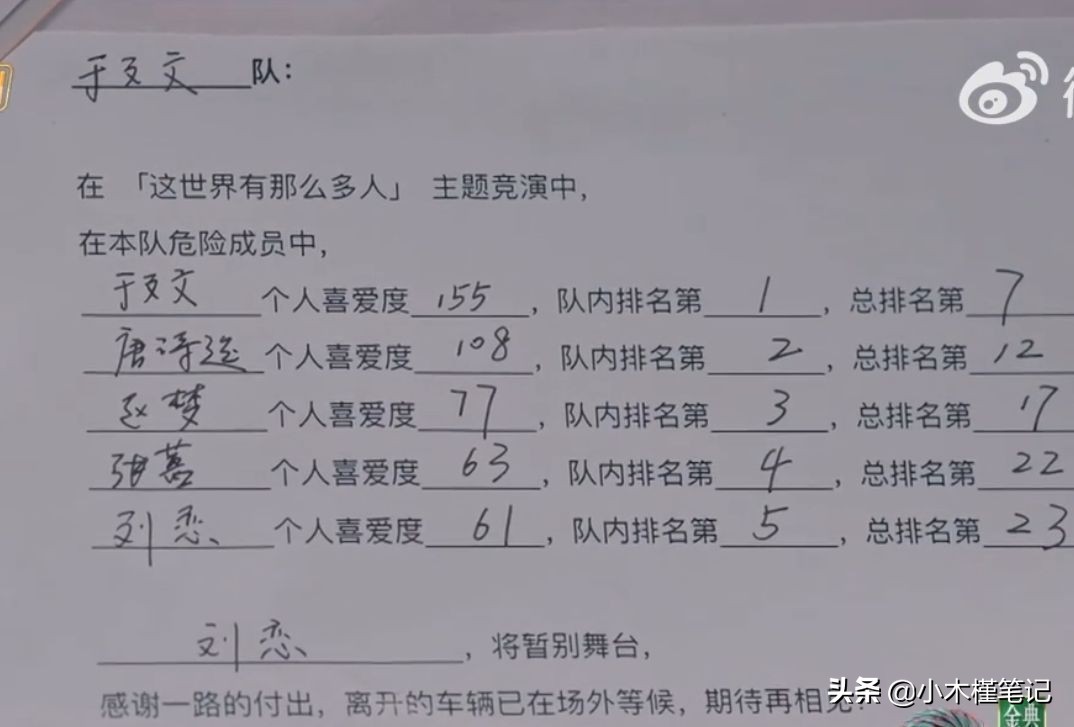 于文文队:
在「这世界有那么多人」主题竞演中,
在本队危险成员中,
于文文个人喜爱度155,队内排名第1,总排名第7
唐诗逸个人喜爱度108,队内排名第2,总排名第12
赵梦个人喜爱度77,队内排名第3,总排名第17
张蔷个人喜爱度63,队内排名第4,总排名第22
刘恋个人喜爱度61,队内排名第5,总排名第23
刘恋,将暂别舞台,
感谢一路的付出,离开的车辆已在场外等候,期待再相见!
头条 @小木槿笔记
金典